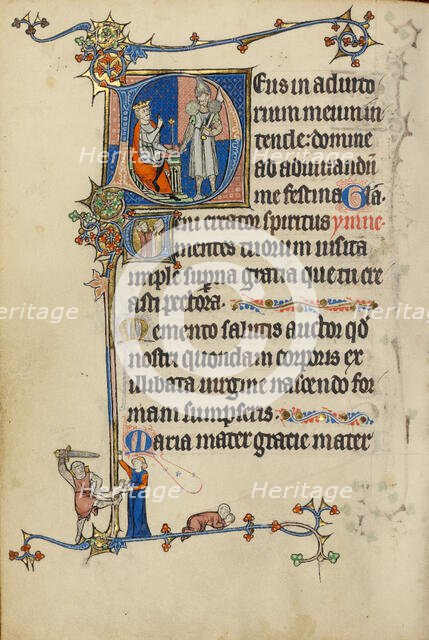 Deus in adiuto
rium meum in
tende: domine
ab adiuuandū
me festina Gła.
Veni creator spiritus ymne
mentes tuorum uisita
imple supna gratia que tu cre
asti pectora.
Memento salutis auctor qd
nostri quondam corporis ex
illibata uirgine nascendo for
mam sumpseris.
Maria mater gracie mater
Heritage
Heritage
Heritage
Heritage
Heritage
Heritage